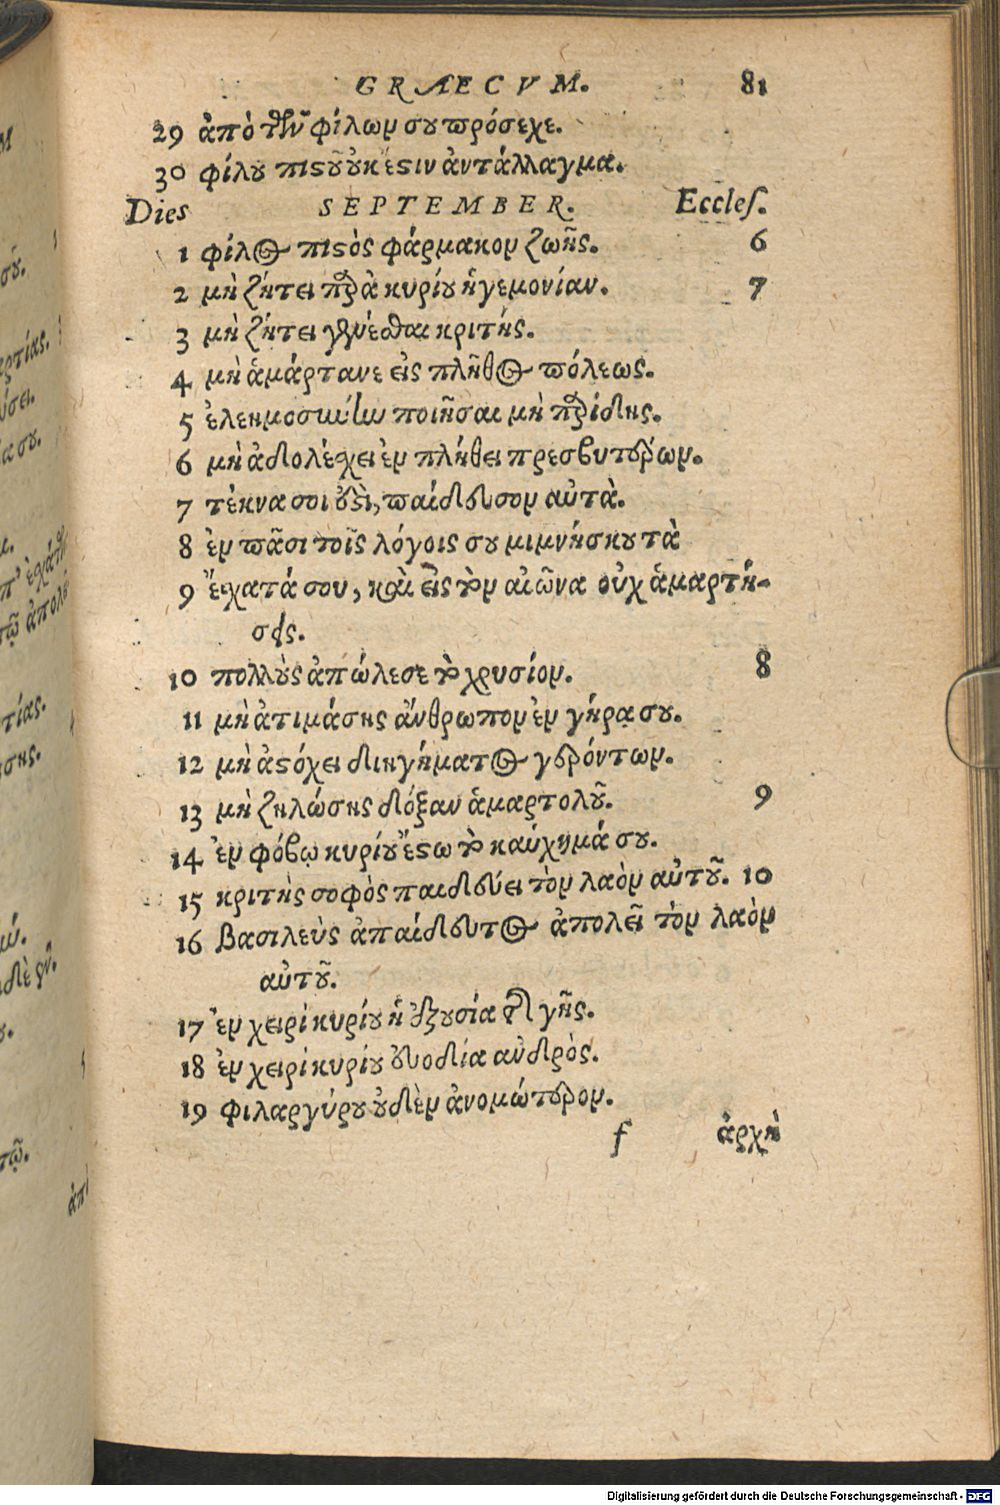 GRAECVM. 81
29 ἀπὸ τῶν φίλων σου πρόσεχε.
30 φίλου πιστοῦ οὐκ ἔστιν ἀντάλλαγμα.
Dies SEPTEMBER. Eccles.
1 φίλος πιστὸς φάρμακον ζωῆς. 6
2 μὴ ζήτει παρὰ κυρίου ἡγεμονίαν. 7
3 μὴ ζήτει γενέσθαι κριτής.
4 μὴ ἁμάρτανε εἰς πλῆθος πόλεως.
5 ἐλεημοσύνην ποιῆσαι μὴ παρίδης.
6 μὴ ἀδολέσχει ἐν πλήθει πρεσβυτέρων.
7 τέκνα σοι ἐστὶ, παίδευσον αὐτὰ.
8 ἐν πᾶσι τοῖς λόγοις σου μιμνήσκου τὰ
9 ἔσχατά σου, καὶ εἰς τὸν αἰῶνα οὐχ ἁμαρτή-
σεις.
10 πολλοὺς ἀπώλεσε τὸ χρυσίον. 8
11 μὴ ἀτιμάσης ἄνθρωπον ἐν γήρᾳ σου.
12 μὴ ἀστόχει διηγήματος γερόντων.
13 μὴ ζηλώσης δόξαν ἁμαρτολοῦ. 9
14 ἐν φόβῳ κυρίου ἔστω τὸ καύχημά σου.
15 κριτὴς σοφὸς παιδεύει τὸν λαὸν αὐτοῦ. 10
16 βασιλεὺς ἀπαίδευτος ἀπολεῖ τὸν λαὸν
αὐτοῦ.
17 ἐν χειρὶ κυρίου ἡ ἐξουσία τῆς γῆς.
18 ἐν χειρὶ κυρίου εὐοδία ανδρὸς.
19 φιλαργύρου οὐδὲν ἀνομώτερον.
f ἀρχὴ
Digitalisierung gefördert durch die Deutsche Forschungsgemeinschaft - DFG